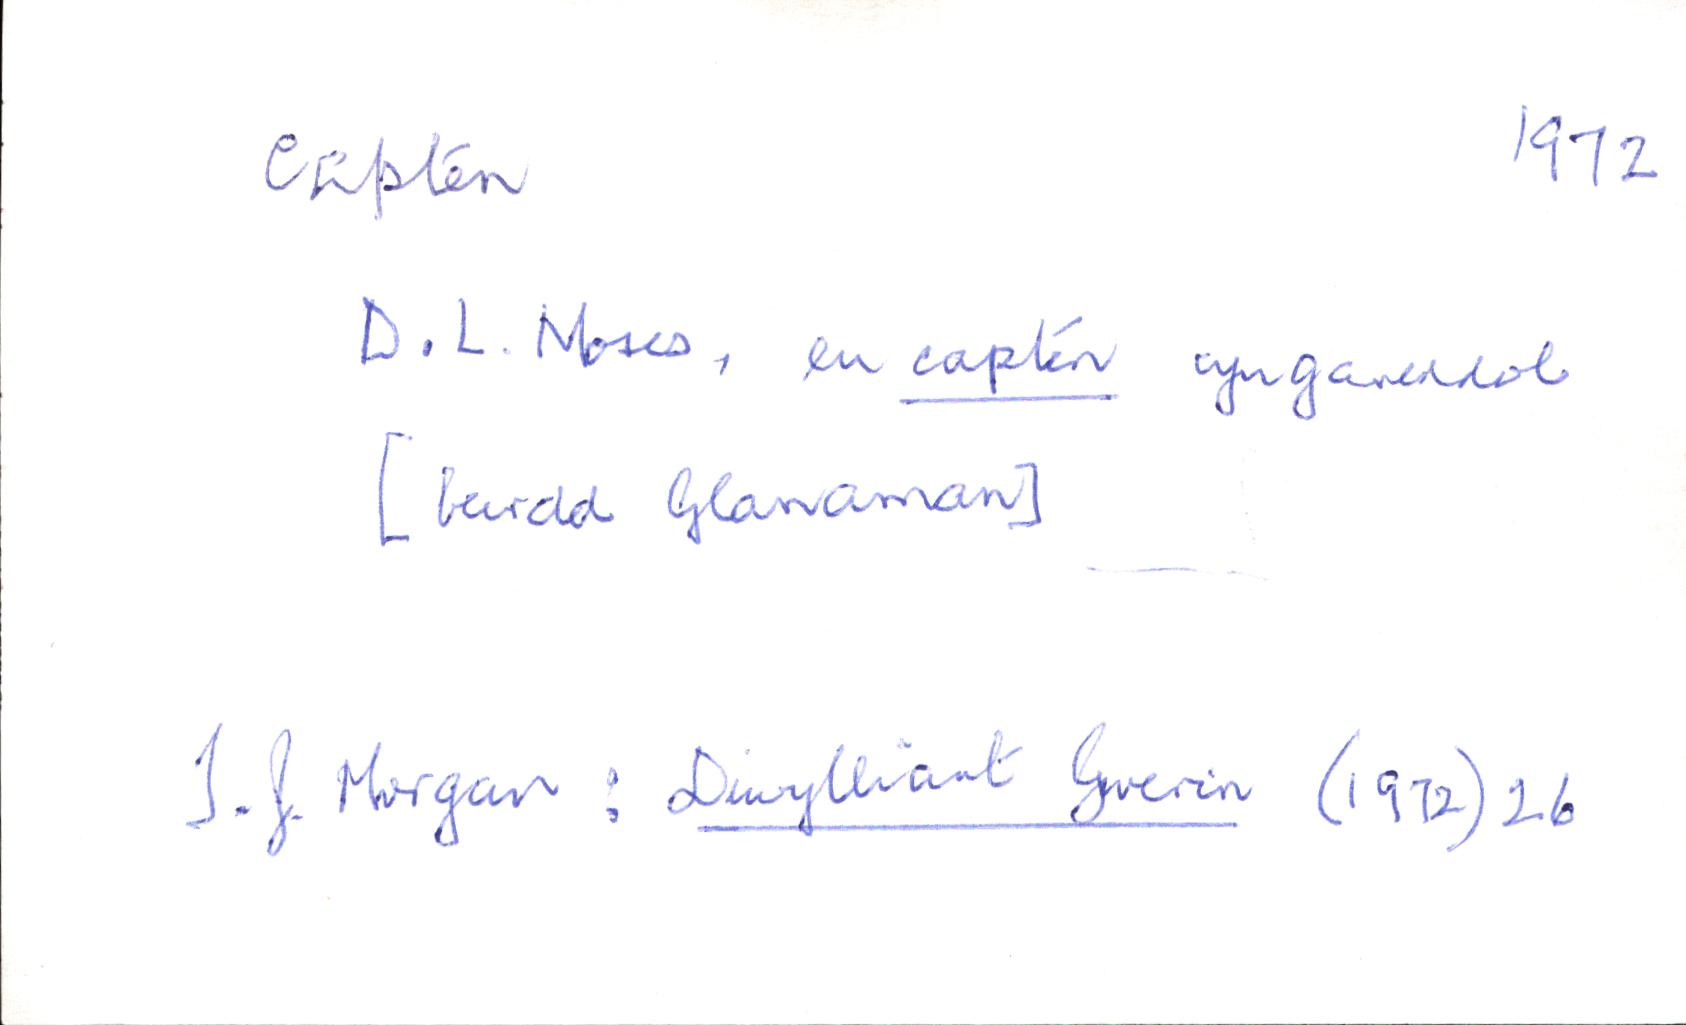 Captên
1972
D. L. Moses, eu captên cynganeddol
[beirdd Glanaman]
T. J. Morgan : Diwylliant Gwerin (1972) 26